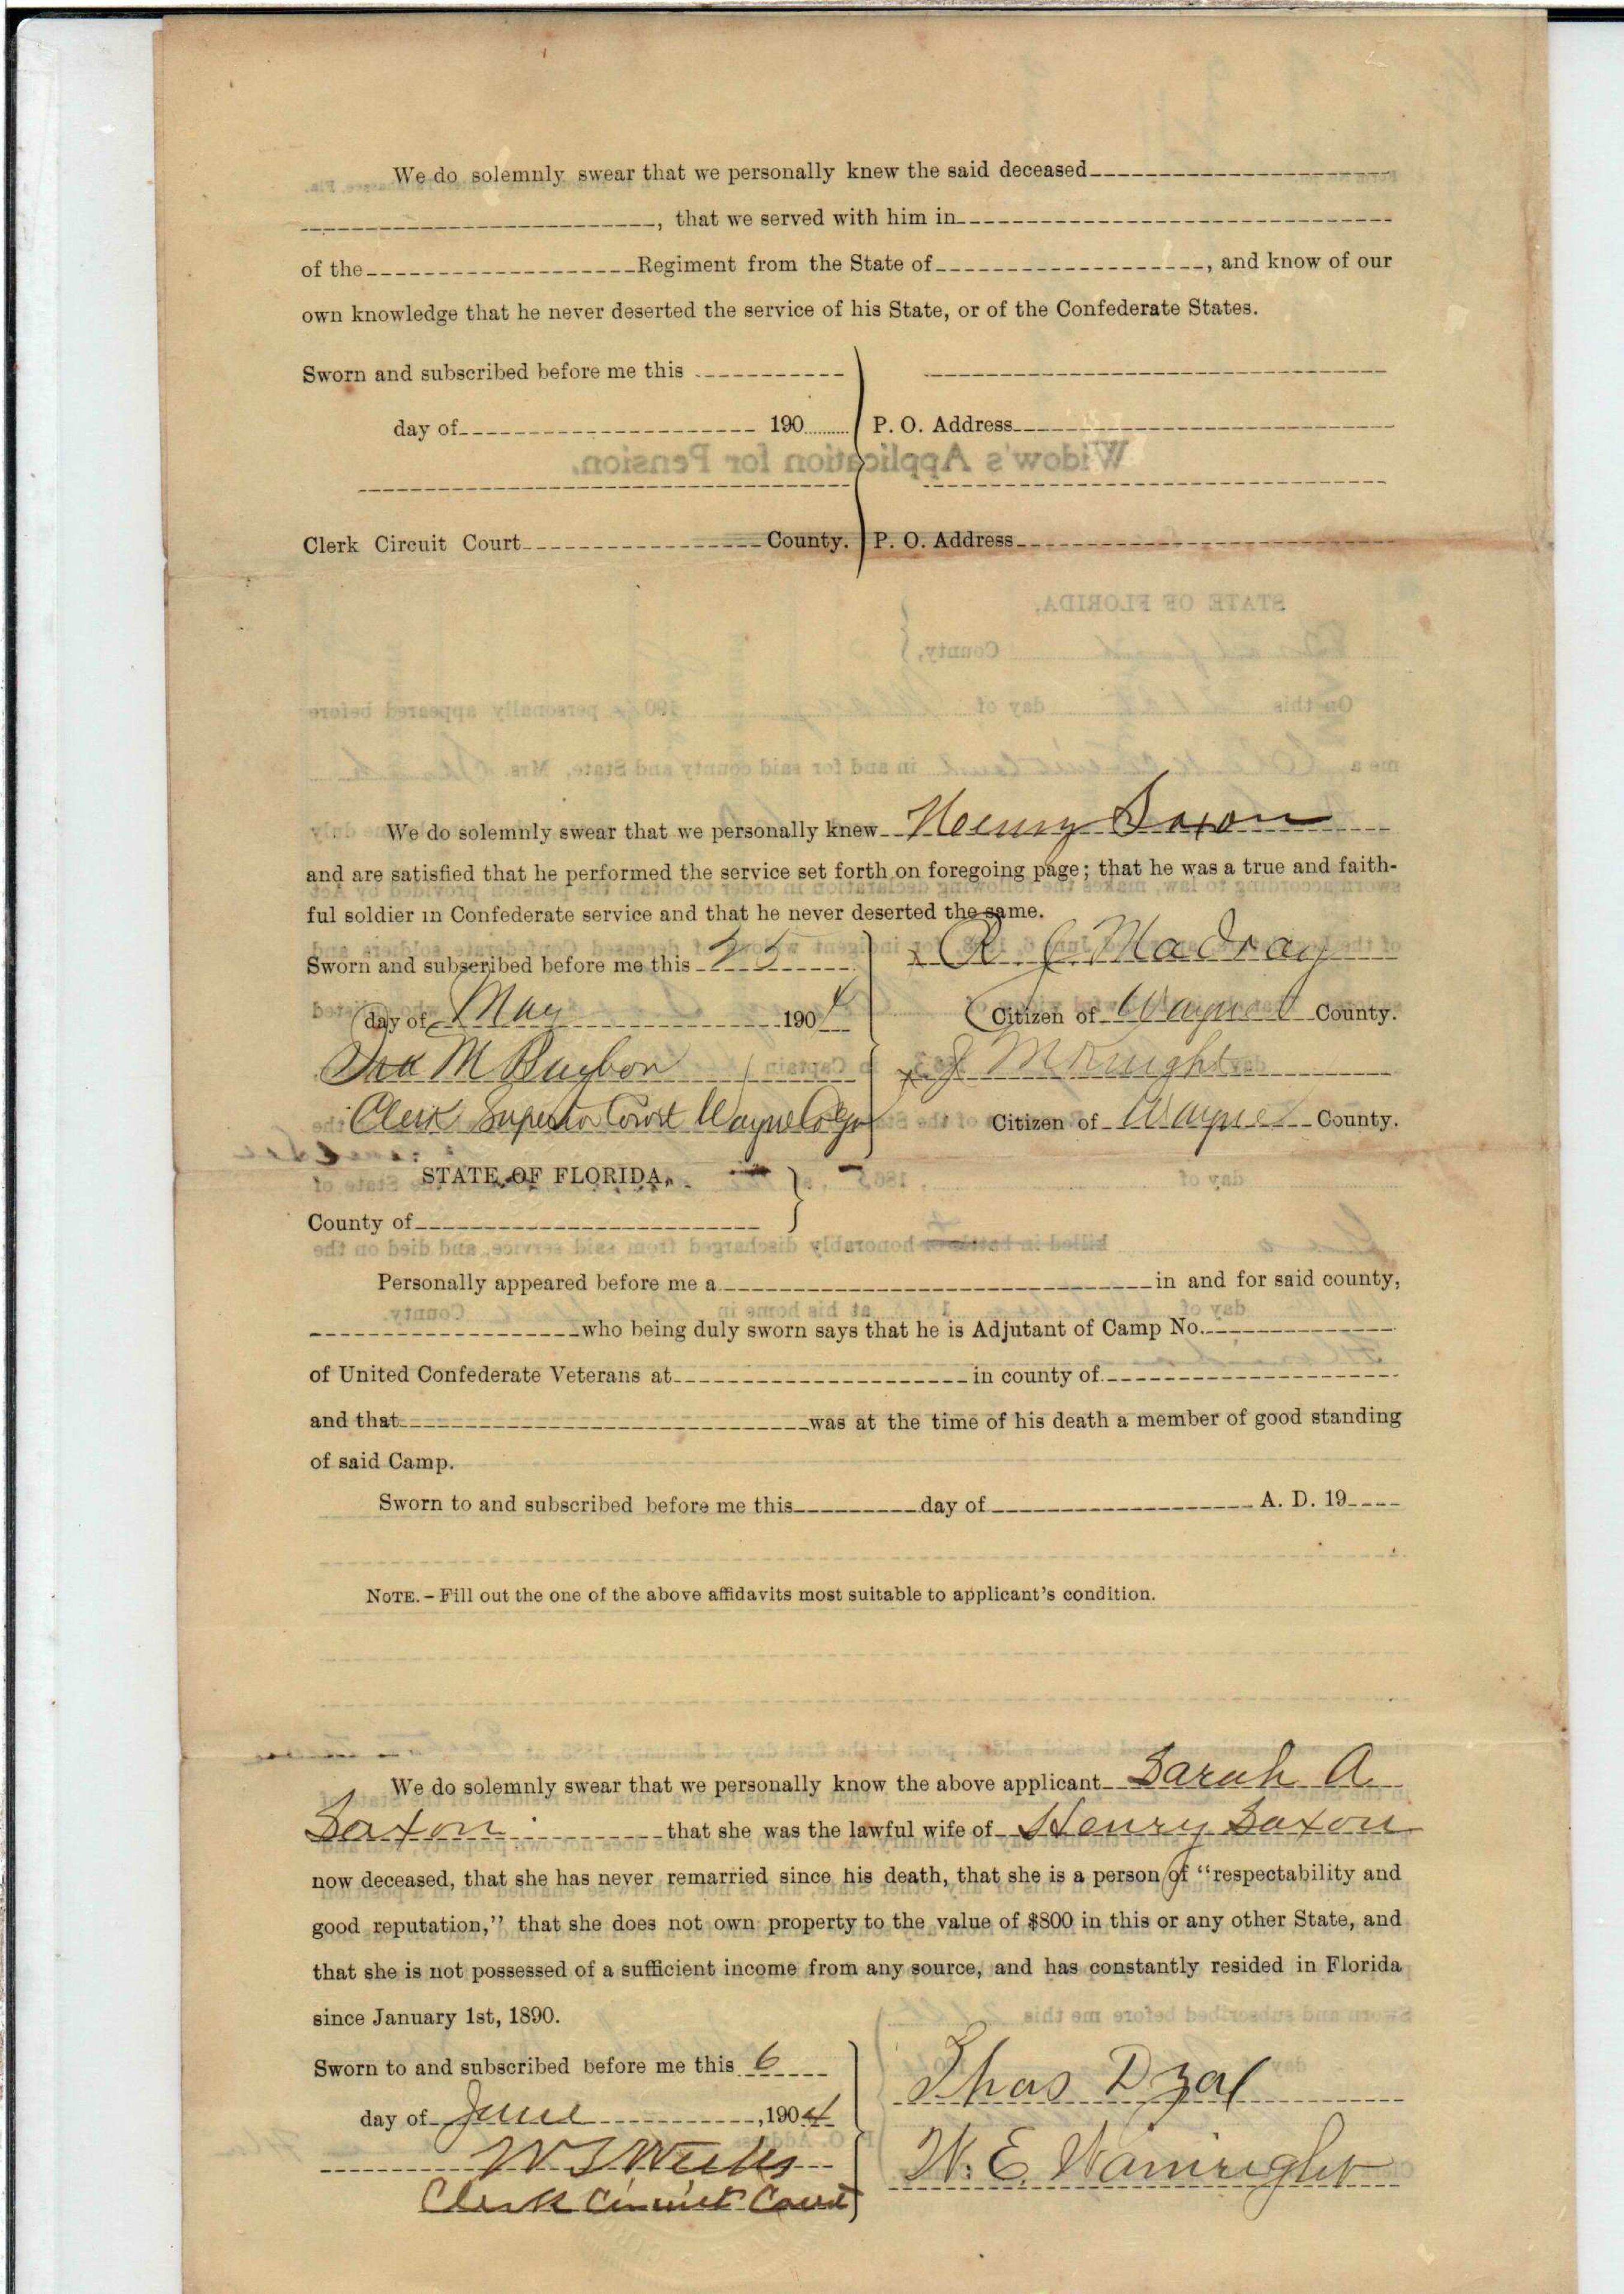 We do solemnly swear that we personally knew the said deceased
, that we served with him in
of the Regiment from the State of , and know of our
own knowledge that he never deserted the service of his State, or of the Confederate States.
Sworn and subscribed before me this
day of 190 P. O. Address
Widow's Application for Pension.
Clerk Circuit Court County. P. O. Address
STATE OF FLORIDA,
County,
On this day of 190 personally appeared before
me a in and for said county and State, Mrs.
We do solemnly swear that we personally knew Henry Saxon
and are satisfied that he performed the service set forth on foregoing page; that he was a true and faith-
ful soldier in Confederate service and that he never deserted the same.
Sworn and subscribed before me this 25 R Madray
day of May 1904 Citizen of Wayne County.
M J M Knight
Clerk Superior Court Wayne Co Citizen of Wayne County.
STATE OF FLORIDA,
County of
Personally appeared before me a in and for said county,
who being duly sworn says that he is Adjutant of Camp No.
of United Confederate Veterans at in county of
and that was at the time of his death a member of good standing
of said Camp.
Sworn to and subscribed before me this day of A. D. 19
NOTE.–Fill out the one of the above affidavits most suitable to applicant's condition.
We do solemnly swear that we personally know the above applicant Sarah A.
Saxon that she was the lawful wife of Henry Saxon
now deceased, that she has never remarried since his death, that she is a person of "respectability and
good reputation," that she does not own property to the value of $800 in this or any other State, and
that she is not possessed of a sufficient income from any source, and has constantly resided in Florida
since January 1st, 1890.
Sworn to and subscribed before me this 6
day of June , 1904 Thos
W. E. Wainright
Clerk Circuit Court